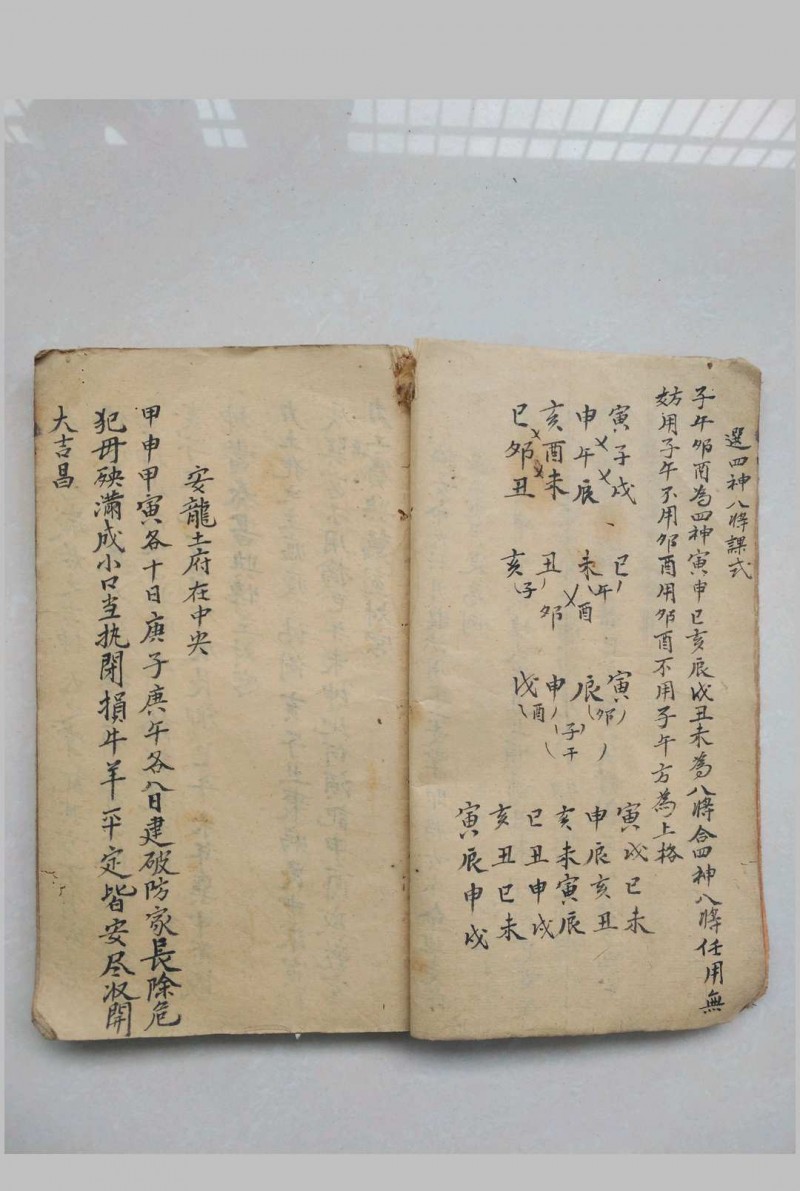 選四神八將課式
子午卯酉為四神寅申巳亥辰戌丑未為八將合四神八將任用無
妨用子午不用卯酉用卯酉不用子午方為上格
寅子戌
申午辰
亥酉未
巳卯丑
巳午
未酉
丑卯
亥子
寅卯
辰子午
申
戌酉
寅戌巳未
申辰亥丑
亥未寅辰
巳丑申戌
亥丑巳未
寅辰申戌
安龍土府在中央
甲申甲寅各十日庚子庚午各八日建破防家長除危
犯母殃滿成小口当执閉損牛羊平定皆安尽收開
大吉昌